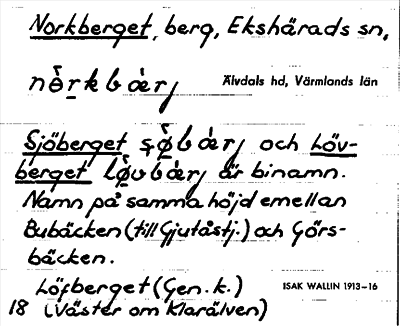 Norkberget, berg, Ekshärads sn,
Älvdals hd, Värmlands län
Sjöberget och Löv-
berget är binamn.
Namn på samma höjd emellan
Bubäcken (till Gjutåstj.) och Görs-
bäcken.
Löfberget (Gen. k.)
ISAK WALLIN 1913-16
18 (Väster om Klarälven)